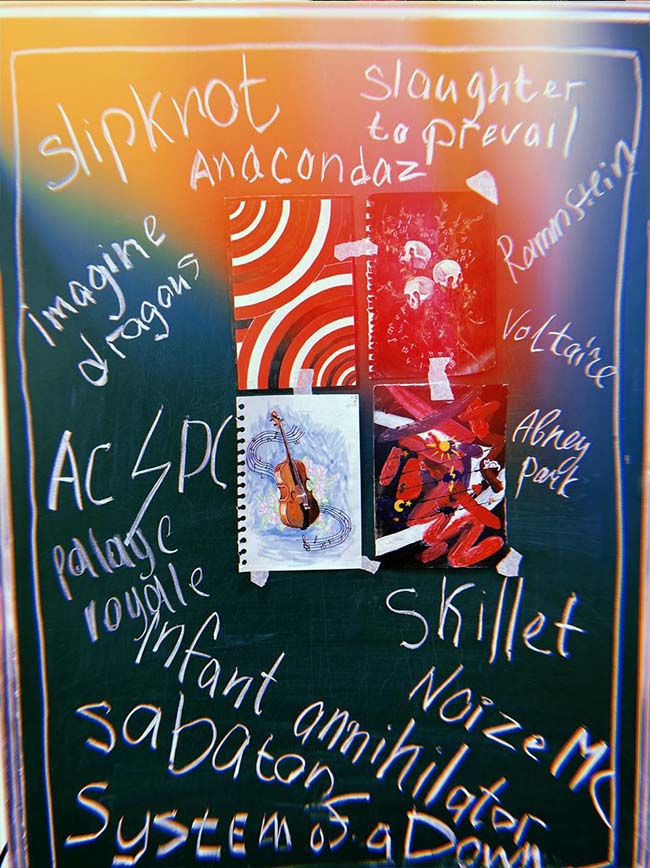 slipknot
slaughter
to prevail
Anacondaz
Rammstein
imagine
dragons
Voltaire
AC⚡DC
Abney
Park
palaye
royale
Skillet
infant annihilator
Noize MC
sabaton
System of a Down